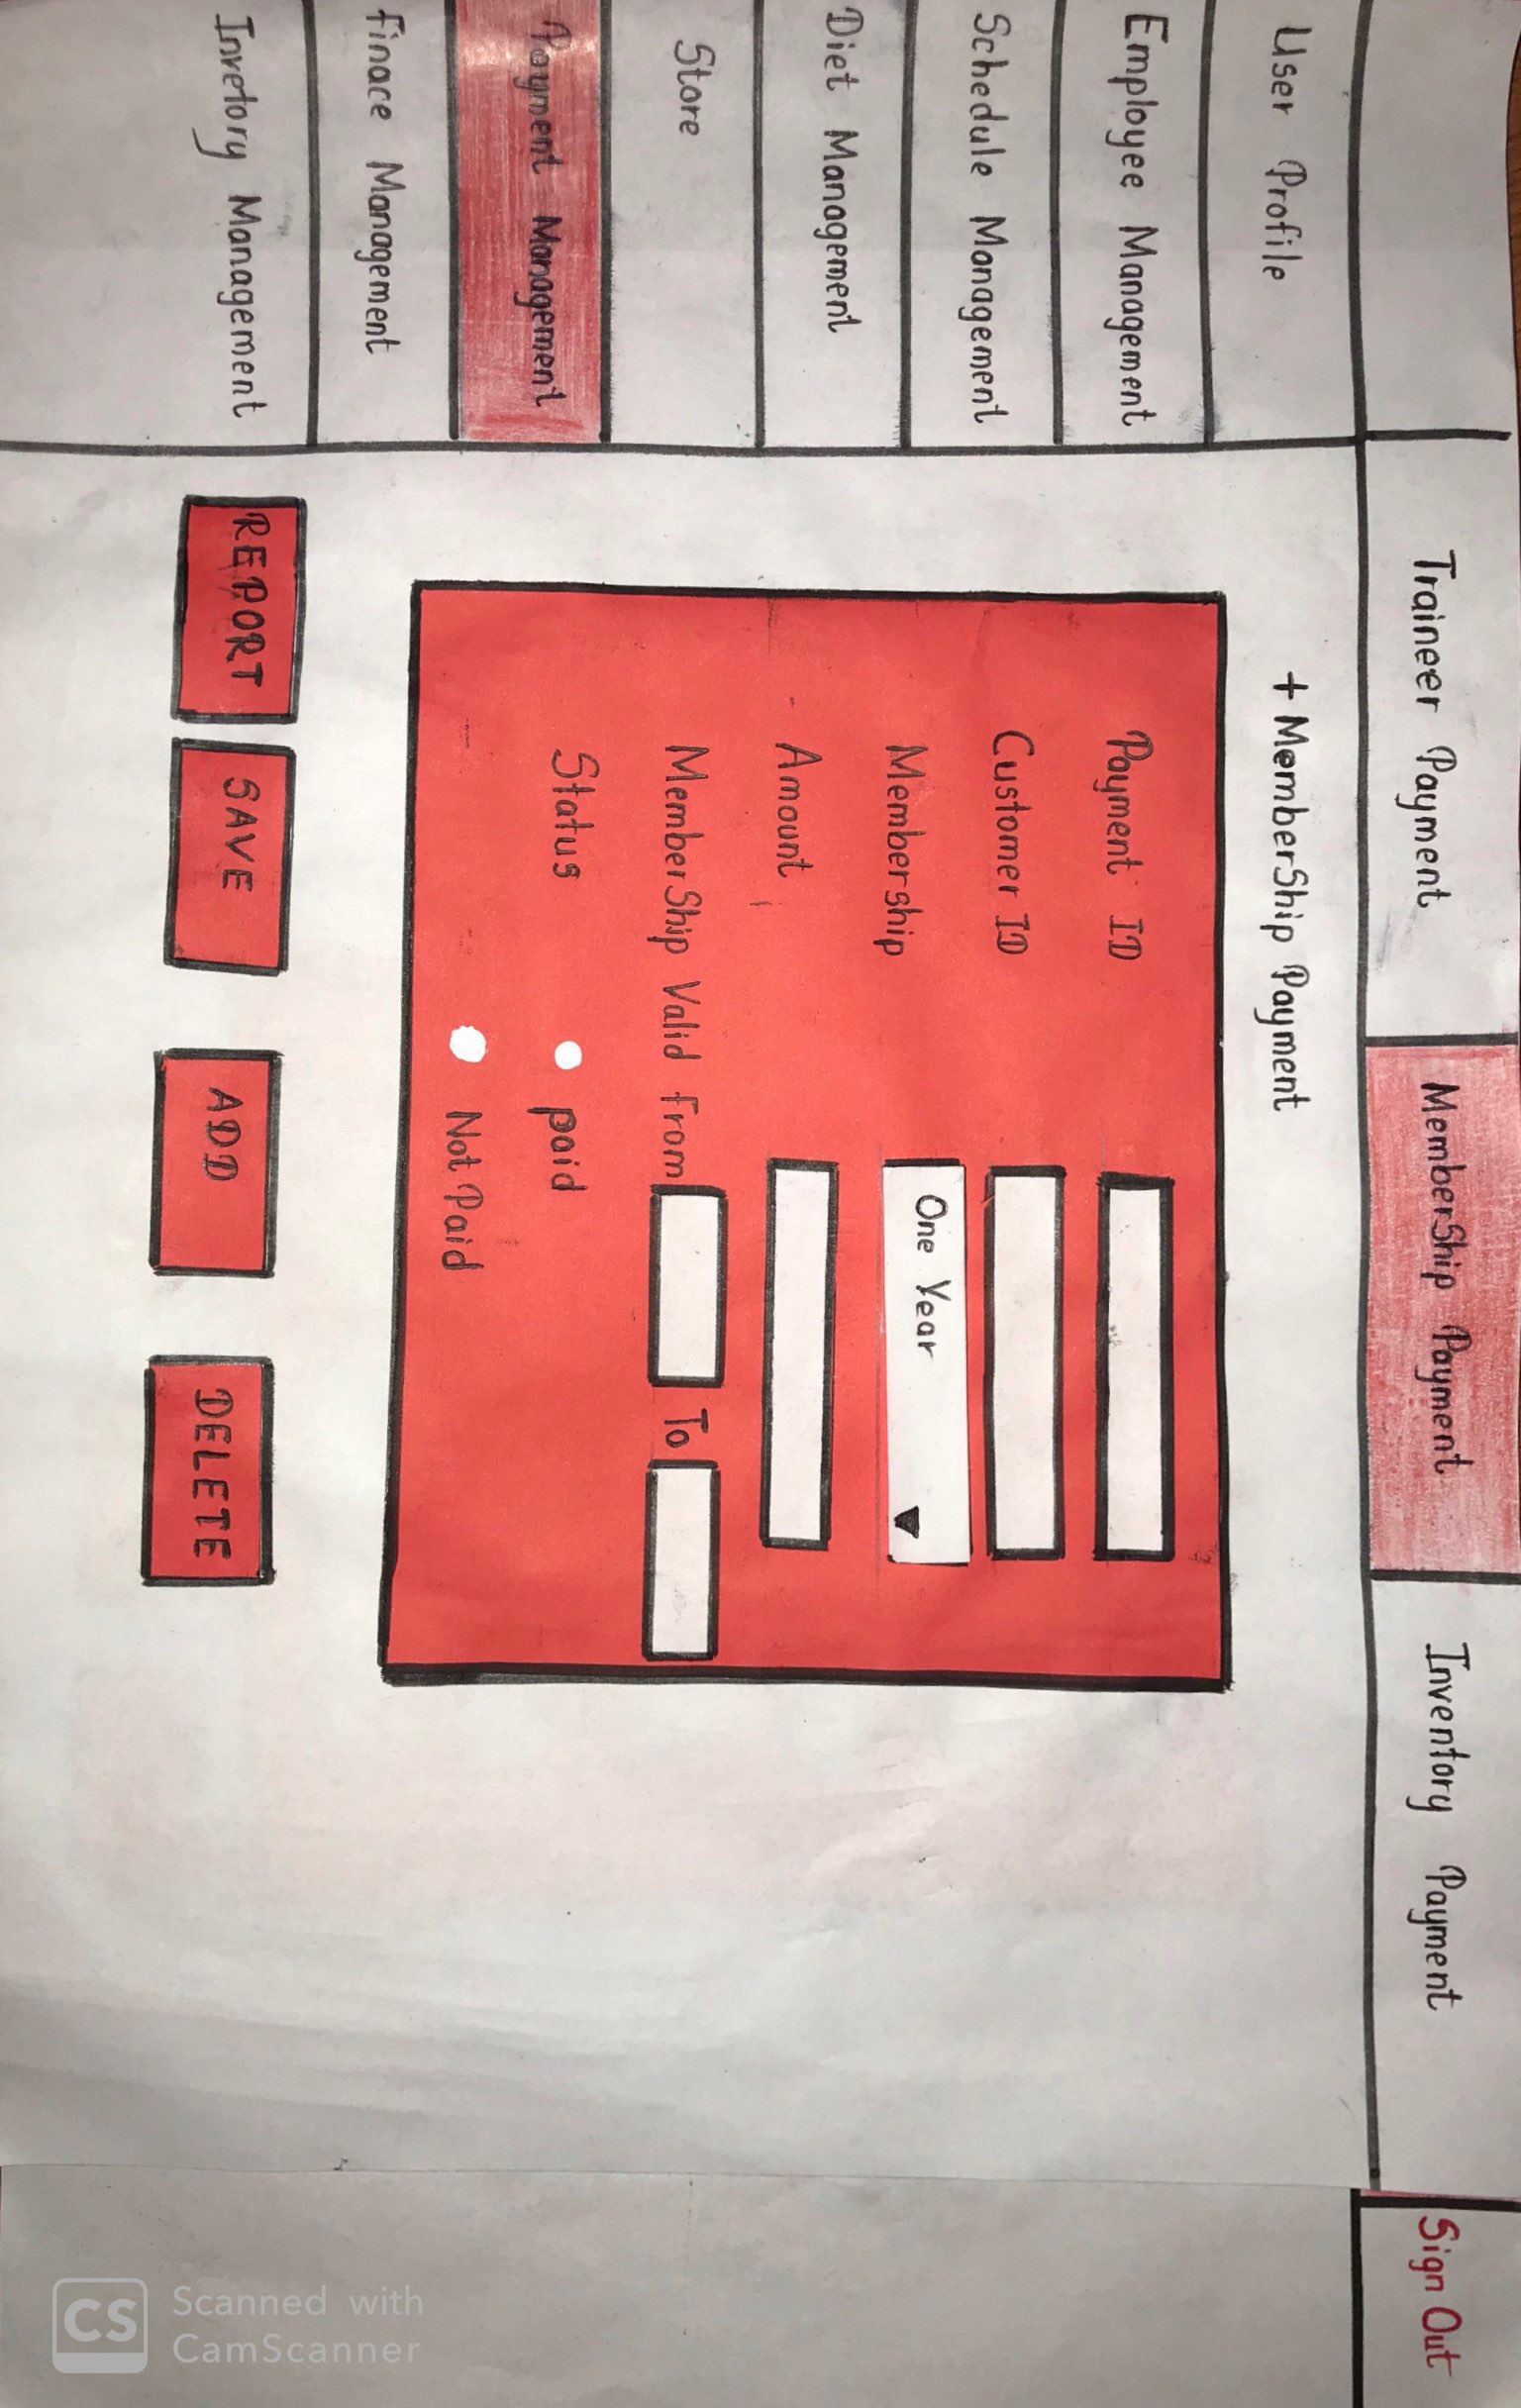 Traineer Payment
MemberShip Payment
Inventory Payment
Sign Out
User Profile
Employee Management
Schedule Management
Diet Management
Store
Payment Management
Finace Management
Invetory Management
+ MemberShip Payment
Payment ID
Customer ID
Membership
One Year
Amount
MemberShip Valid From
To
Status
paid
Not Paid
REPORT
SAVE
ADD
DELETE
Scanned with
CamScanner
CS